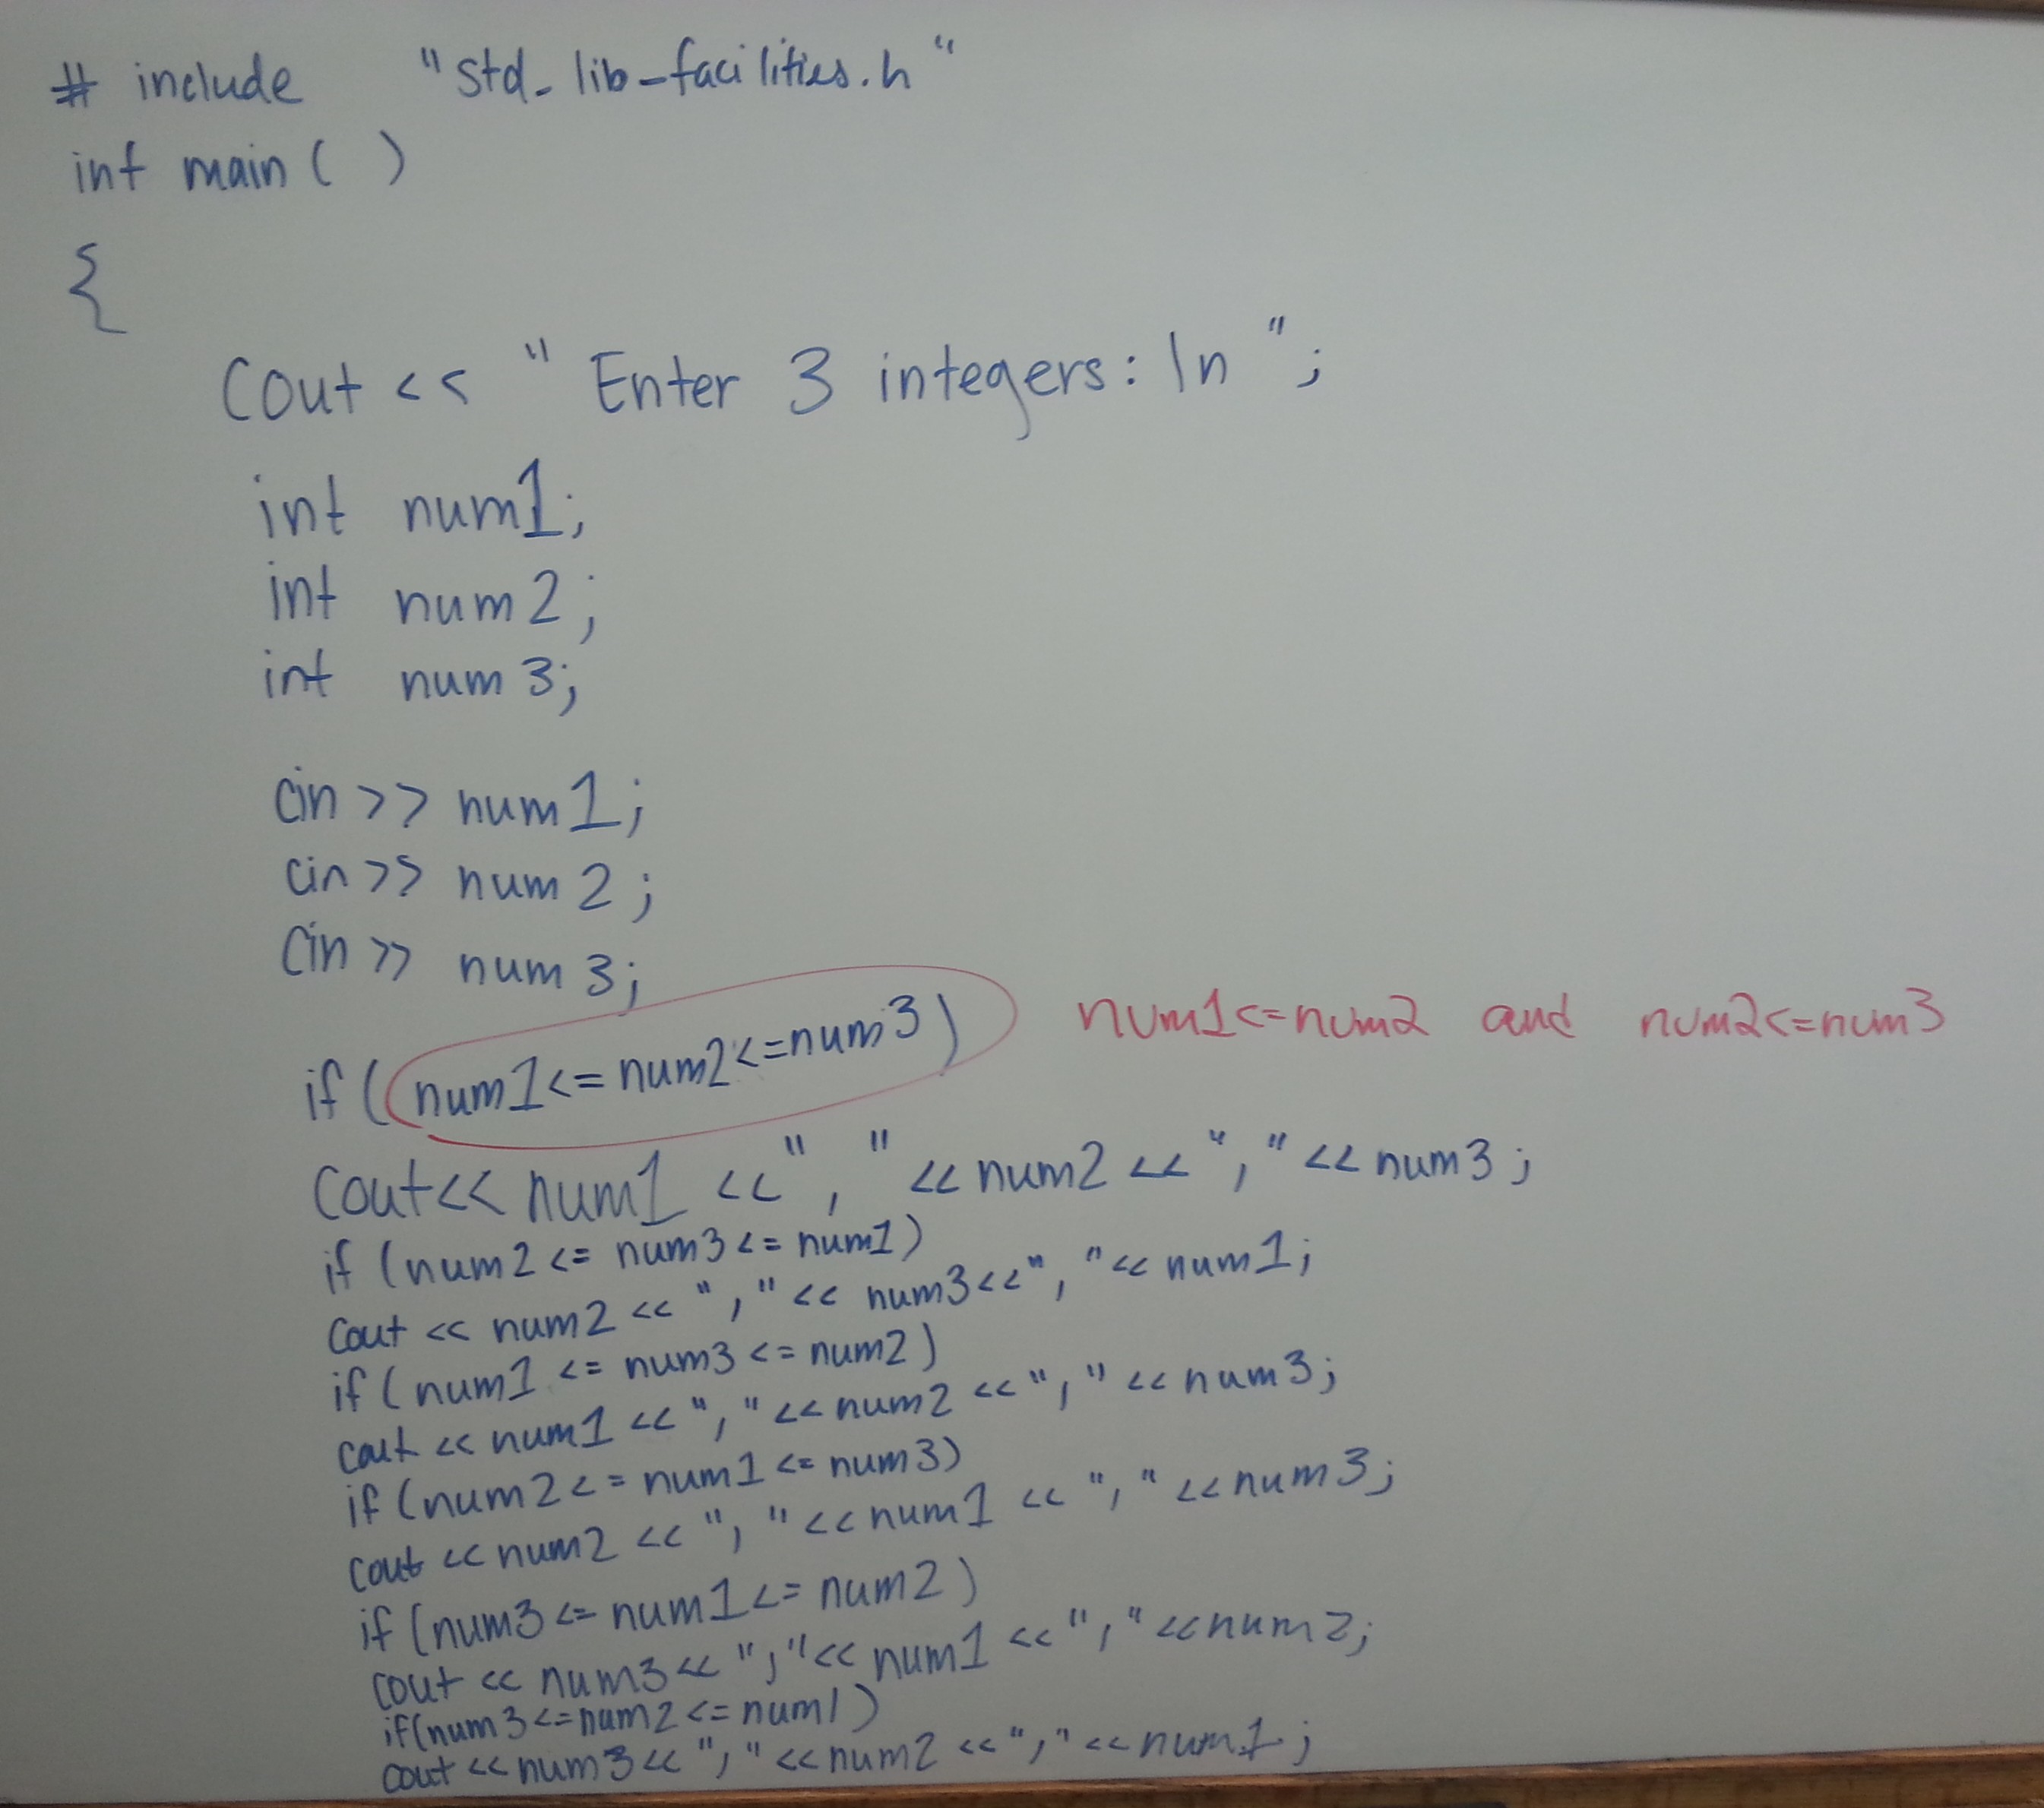 # include "std_lib_facilities.h"
int main ( )
{
Cout << " Enter 3 integers: \n ";
int num1;
int num2;
int num3;
cin >> num1;
cin >> num2;
cin >> num3;
if (num1<= num2<=num3) num1<=num2 and num2<=num3
Cout<< num1 <<", "<< num2 <<","<< num3;
if (num2 <= num3 <= num1)
Cout << num2 <<","<< num3<<", "<< num1;
if (num1 <= num3 <= num2)
cout << num1 <<","<< num2 <<","<< num3;
if (num2 <= num1 <= num3)
cout << num2 <<", "<< num1 <<","<< num3;
if (num3 <= num1 <= num2)
cout << num3 <<","<< num1 <<","<< num2;
if(num3<=num2<=num1)
cout << num3<<","<< num2 <<","<< num1;